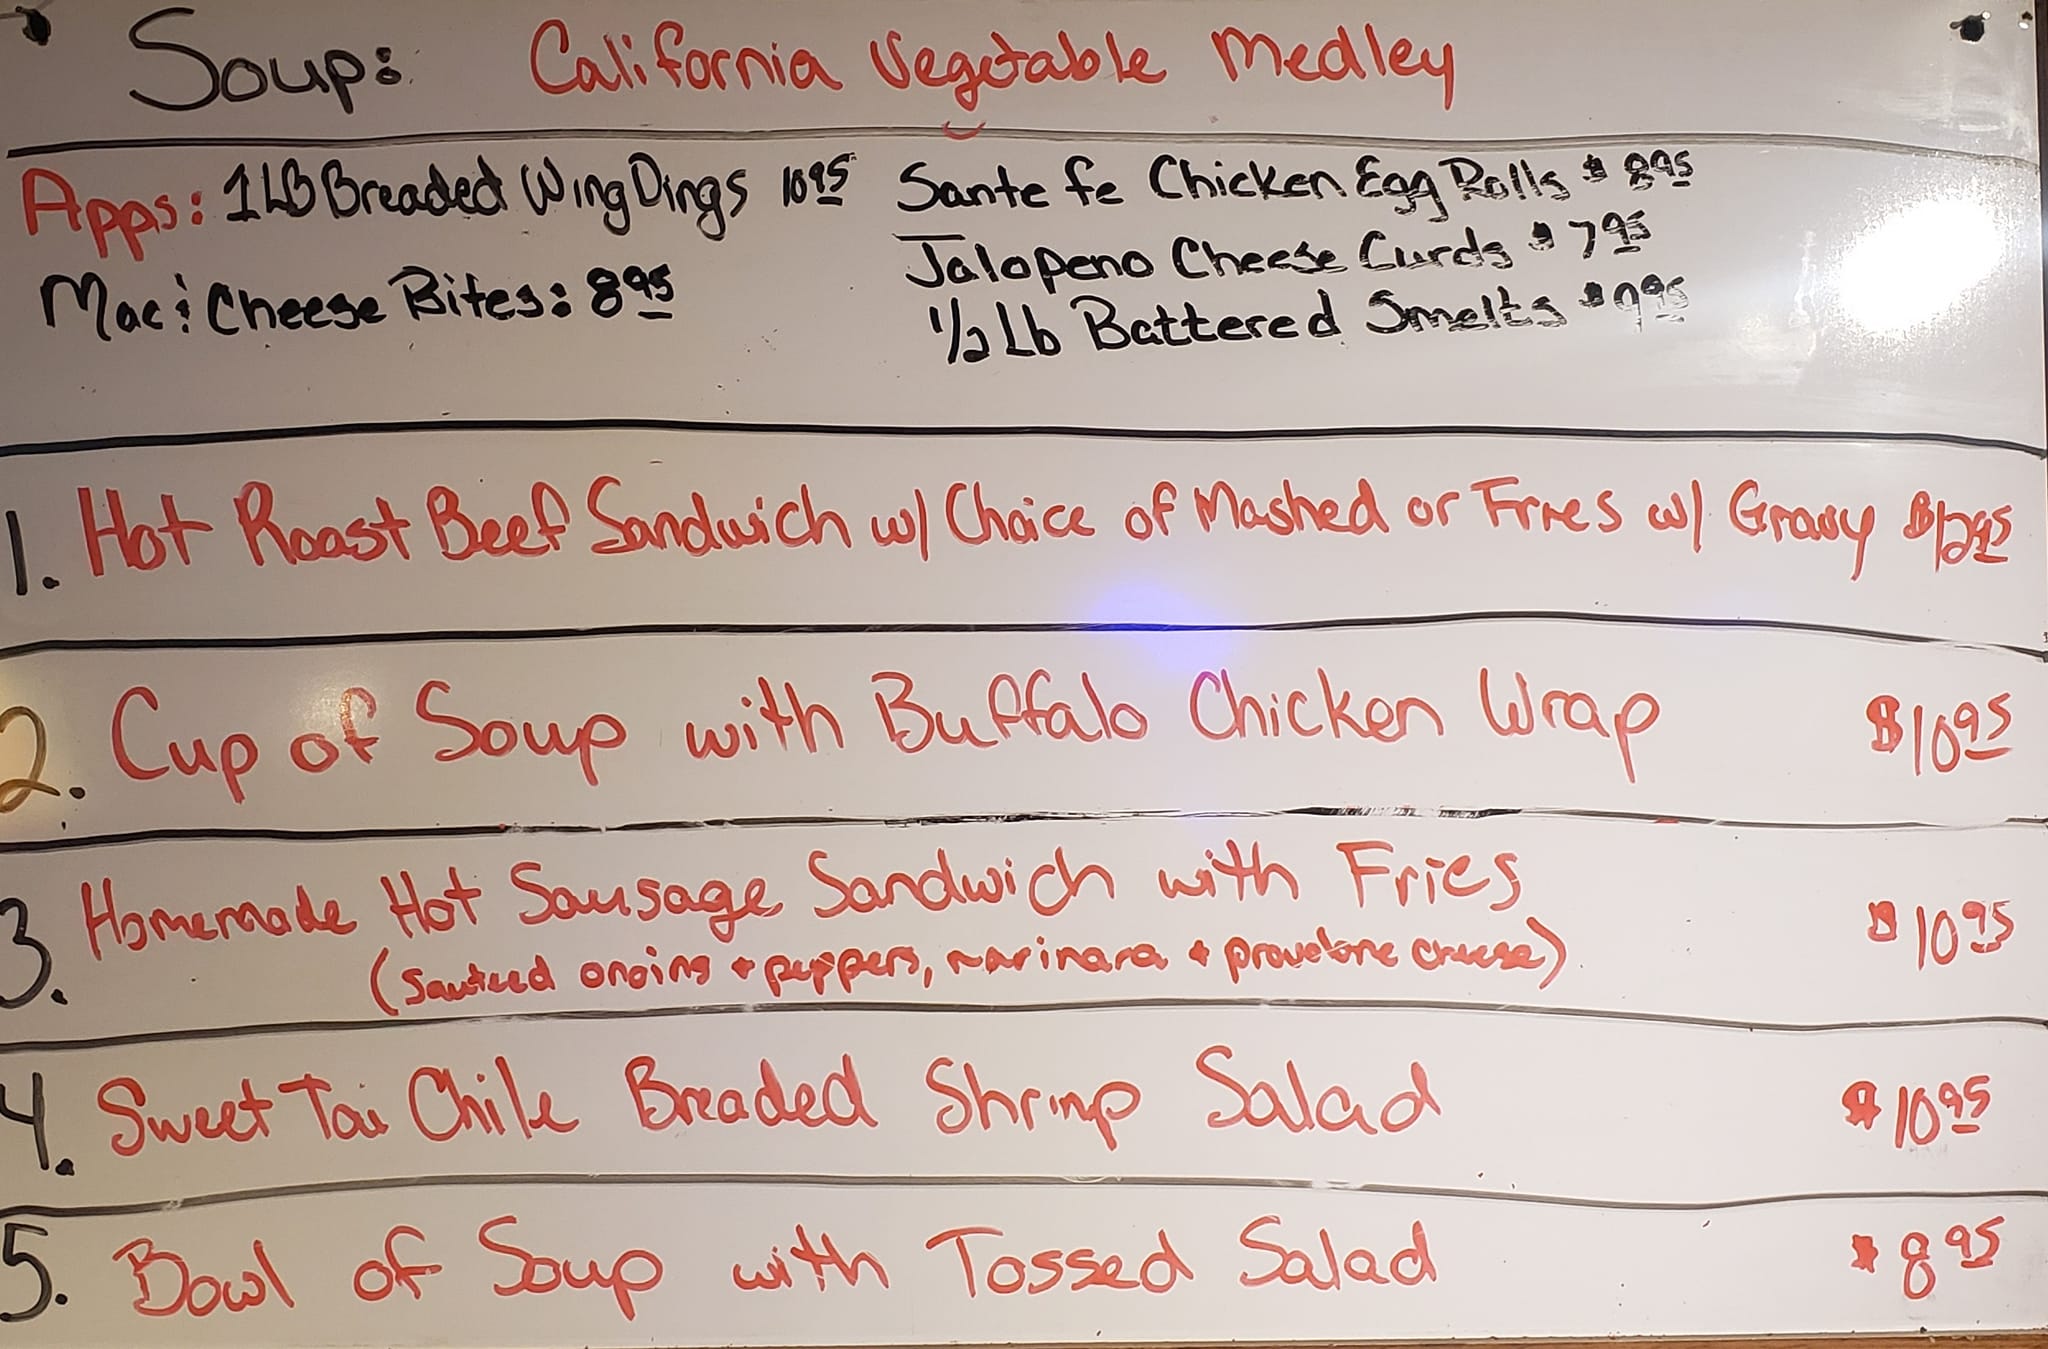 Soup: California Vegetable Medley
Apps: 1 LB Breaded Wing Dings 10 95
Mac & Cheese Bites: 8 95
Sante fe Chicken Egg Rolls $ 8 95
Jalopeno Cheese Curds $ 7 95
1/2 Lb Battered Smelts $ 9 95
1. Hot Roast Beef Sandwich w/ Choice of Mashed or Fries w/ Gravy $12 95
2. Cup of Soup with Buffalo Chicken Wrap $10 95
3. Homemade Hot Sausage Sandwich with Fries $10 95
(sauteed onoins + peppers, marinara + provolone cheese)
4. Sweet Tai Chile Breaded Shrimp Salad $10 95
5. Bowl of Soup with Tossed Salad $8 95